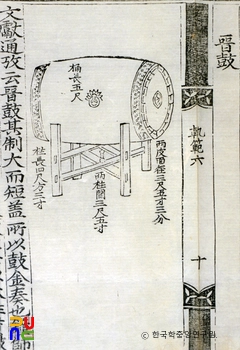 晋鼓
執範六
十
桶長五尺
兩皮面徑三尺五寸三分
兩柱間三尺五寸
柱長四尺方三寸
文獻通攷云晋鼓其制大而短盖所以鼓金奏也
© 한국학중앙연구원